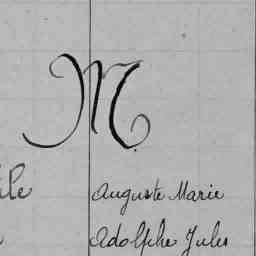 M
Auguste Marie
Adolphe Jules